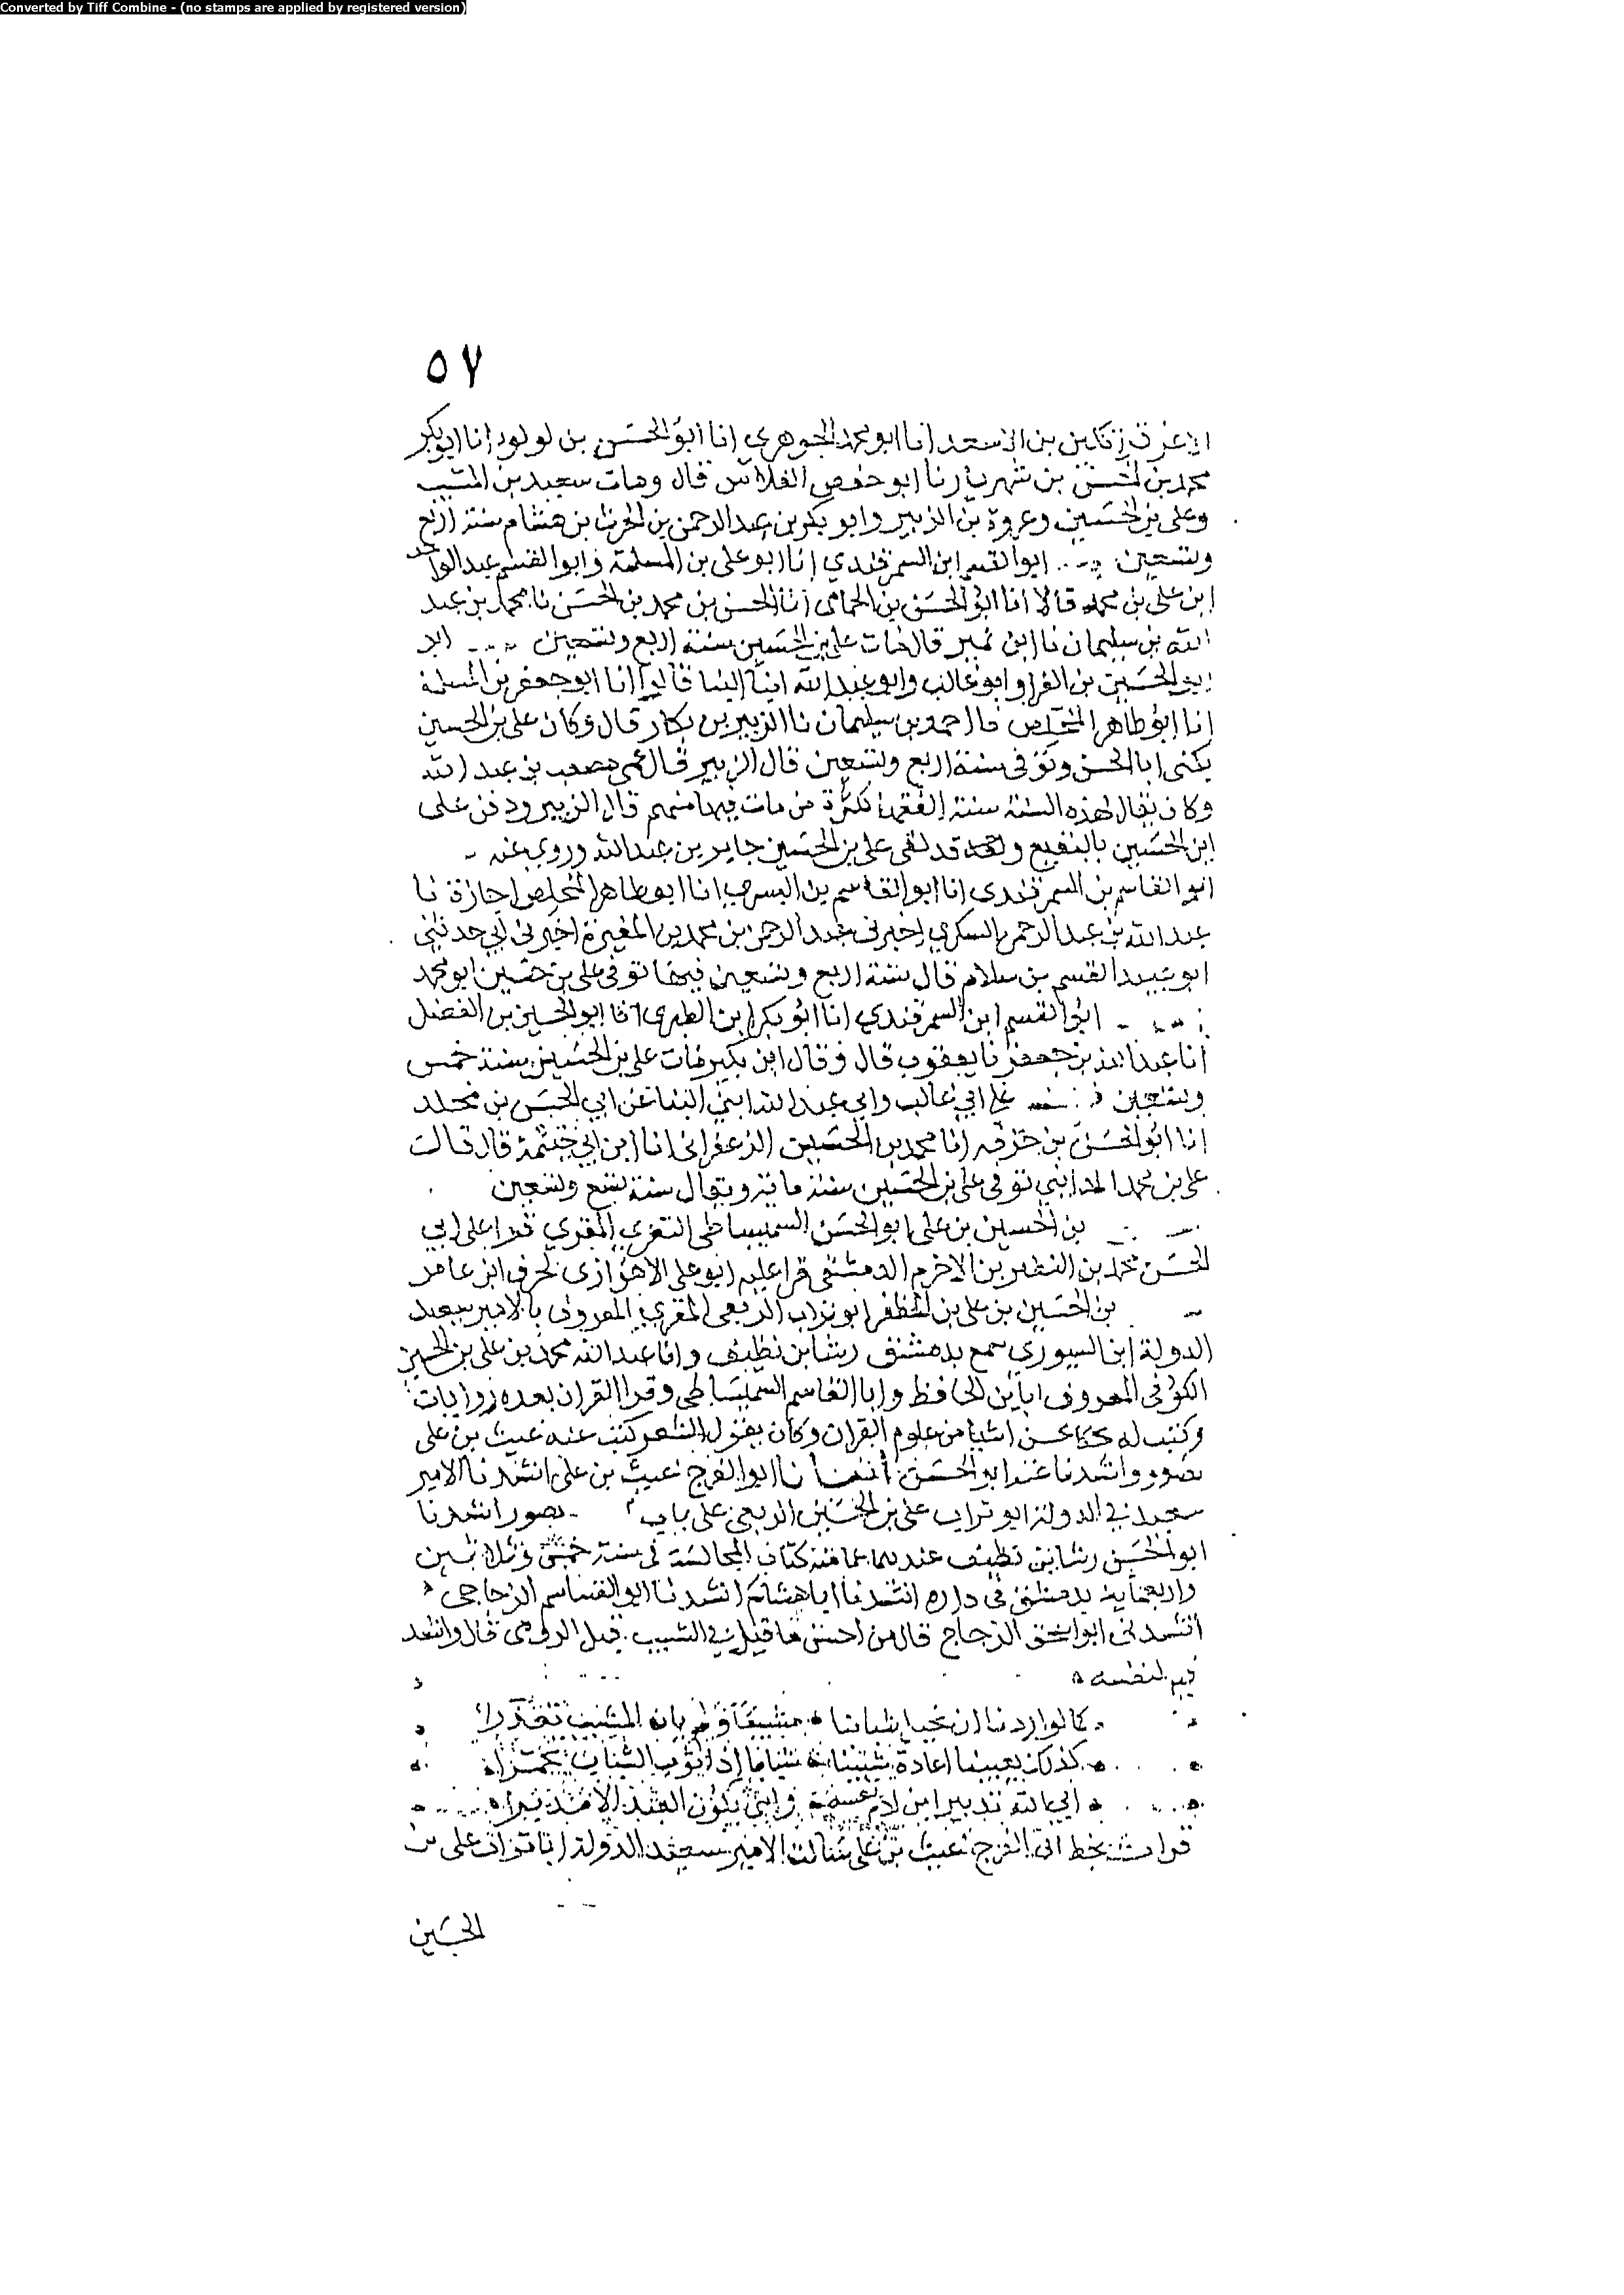 Converted by Tiff Combine - (no stamps are applied by registered version)
٥٧
الاعز قراتكين بن الاسعد انا ابو محمد الجوهري انا ابو الحسن بن لولو انا ابو بكر
محمد بن الحسين بن شهريار نا ابو حفص الفلاس قال ومات سعيد بن المسيب
وعلى بن الحسين وعروة بن الزبير وابو بكر بن عبد الرحمن بن الحرث بن هشام سنة اربع
وتسعين ابو القسم ابن السمرقندي انا ابو على بن المسلمة وابو القسم عبد الواحد
ابن على بن محمد قالا انا ابو الحسن بن الحمامى انا الحسن بن محمد بن الحسن نا محمد بن عبد
الله بن سليمان نا ابن نمير قال مات على بن الحسين سنة اربع وتسعين
الحسين بن الفرا وابو غالب وابو عبد الله ابنا البنا قالوا انا ابو جعفر بن المسلمة
انا ابو طاهر المخلص نا احمد بن سليمان نا الزبير بن بكار قال وكان على بن الحسين
يكنى ابا الحسن وتوفى سنة اربع وتسعين قال الزبير قال عمى مصعب بن عبد الله
وكان يقال لهذه السنة سنة الفقها لكثرة من مات فيها منهم قال الزبير ودفن على
ابن الحسين بالبقيع وقد لقى على بن الحسين جابر بن عبد الله وروى عنه
ابو القاسم بن السمرقندى انا ابو القاسم بن البسرى انا ابو طاهر المخلص اجازة نا
عبد الله بن عبد الرحمن السكري اخبرنى عبد الرحمن بن محمد بن المغيرة اخبرنى ابي حدثني
ابو عبيد القسم بن سلام قال سنة اربع وتسعين فيها توفى على بن حسين ابو محمد
ابو القسم ابن السمرقندي انا ابو بكر ابن الطبرى انا ابو الحسين بن الفضل
انا عبد الله بن جعفر نا يعقوب قال وقال ابن بكير مات على بن الحسين سنة خمس
وتسعين على ابي غالب وابي عبد الله ابني البنا عن ابي الحسن بن مخلد
انا ابو الحسن بن خزفه انا محمد بن الحسين الزعفرانى انا ابن ابي خيثمة قال قال
على بن محمد المدايني توفى على بن الحسين سنة ماية ويقال سنة تسع وتسعين
بن الحسين بن على ابو الحسن السميساطى الثغري المقري قرا على ابي
الحسن محمد بن النضر بن الاخرم الدمشقى قرا عليه ابو على الاهوازى لحرف ابن عامر
بن الحسين بن على بن المظفر ابو تراب الربعى المقري المعروف بالامير سعيد
الدولة ابن السيوري سمع بدمشق رشا بن نظيف وابا عبد الله محمد بن على بن الحسين
الكوفى المعروف بابن الحافظ وابا القاسم السميساطى وقرا القران بعده روايات
وكتب له اشيا من علوم القران وكان يقول الشعر كتب عنه غيث بن على
بصور وانشدنا عنه ابو الحسن نا ابو الفرج غيث بن على انشدنا الامير
سعيد الدولة ابو تراب على بن الحسين الربعى على باب بصور انشدنا
ابو الحسن رشا بن نظيف عند سماعنا منه كتاب المجالسة فى سنة خمس وثلاثين
واربعماية بدمشق فى داره انشدنا ابا هشام انشدنا ابو القاسم الزجاجى
انشدنى ابو اسحق الزجاج قال من احسن ما قيل في الشيب قول الرومى قال وانشد
فيه لنفسه
كالوا اردنا ان نحيل شبابنا مشيبا ولم يان المشيب تعذرا
كذلك يعيينا اعادة شيبنا شبابا اذا ثوب الشباب تحسرا
ابى الله تدبير ابن ادم نفسه وانى يكون العبد الا مدبرا
قرات بخط ابى الفرج غيث بن على سالت الامير سعيد الدولة ابا تراب على بن
الحسين